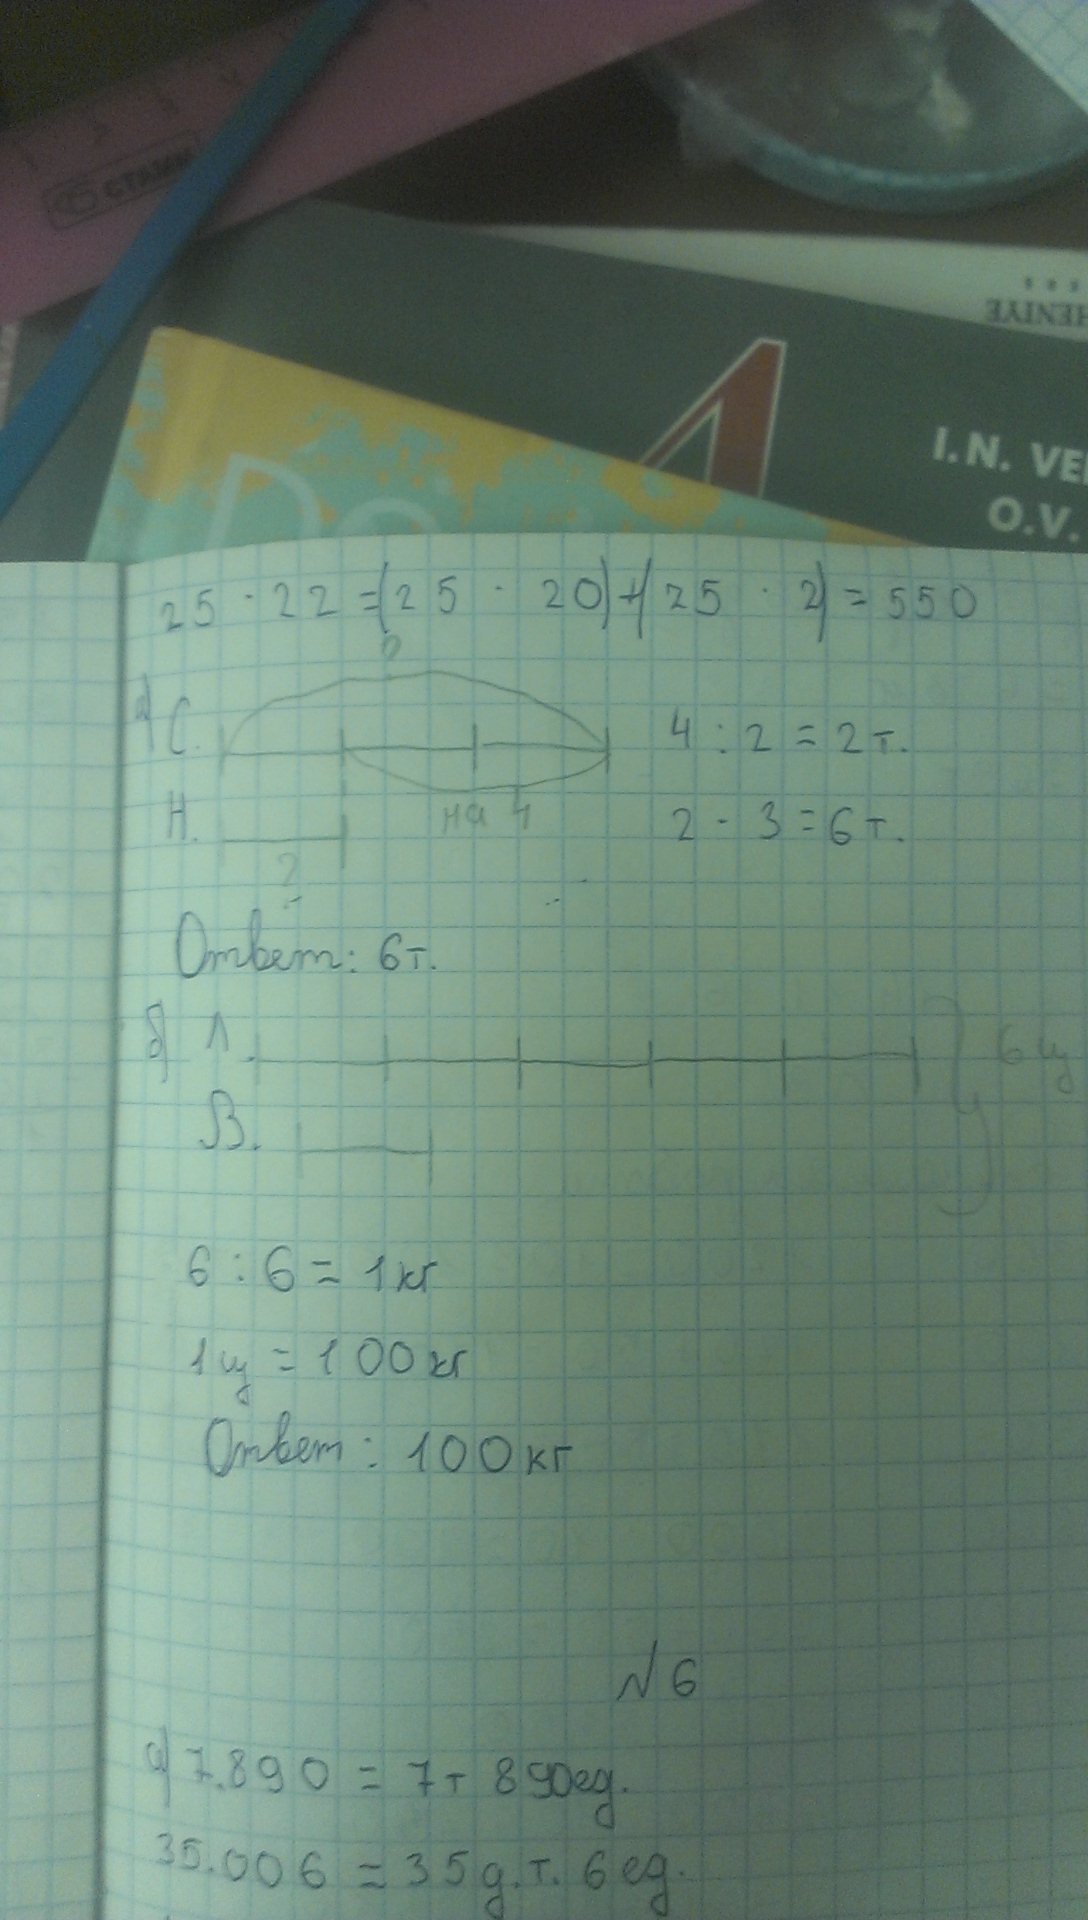 СТАММ
I.N. VE
O.V.
25 · 22 = (25 · 20) + (25 · 2) = 550
а) С.
?
4 : 2 = 2 т.
Н.
на 4
2 · 3 = 6 т.
?
Ответ: 6 т.
б) Л.
6 ц
В.
6 : 6 = 1 кг
1 ц = 100 кг
Ответ: 100 кг
№ 6
а) 7.890 = 7 т 890 ед.
35.006 = 35 д.т. 6 ед.